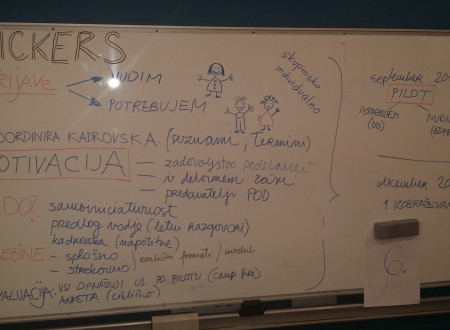 ICKERS
RIJAVE
NUDIM
POTREBUJEM
skupinsko
individualno
OORDINIRA KADROVSKA (seznami, termini)
OTIVACIJA
– zadovoljstvo sodelavcev
– v delovnem času
– predavatelji POD
DO?
samoiniciativnost
predlog vodje (letni razgovori)
kadrovska (napotitve)
EBINE
– splošno
– strokovno
različni formati / moduli
VALUACIJA: VSI DANAŠNJI UD. PO PILOTU
ANKETA (ciljno)
september 20
PILOT
POTREBUJEM
NUDI
december 20
1 IZOBRAŽEVAN
6.